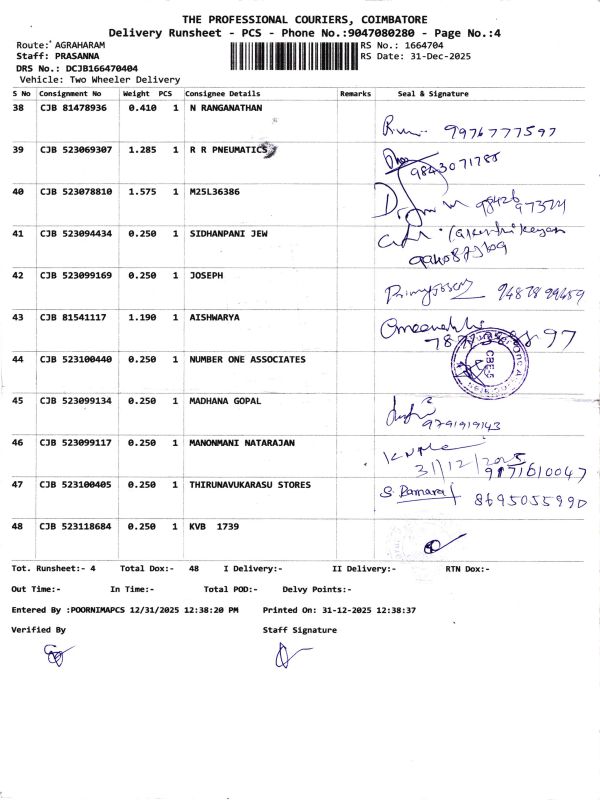 THE PROFESSIONAL COURIERS, COIMBATORE
Delivery Runsheet - PCS - Phone No.:9047080280 - Page No.:4
Route: AGRAHARAM
RS No.: 1664704
Staff: PRASANNA
RS Date: 31-Dec-2025
DRS No.: DCJB166470404
Vehicle: Two Wheeler Delivery
S No Consignment No Weight PCS Consignee Details Remarks Seal & Signature
38 CJB 81478936 0.410 1 N RANGANATHAN
9976777597
39 CJB 523069307 1.285 1 R R PNEUMATICS
9843071785
40 CJB 523078810 1.575 1 M25L36386
41 CJB 523094434 0.250 1 SIDHANPANI JEW
42 CJB 523099169 0.250 1 JOSEPH
9487899459
43 CJB 81541117 1.190 1 AISHWARYA
44 CJB 523100440 0.250 1 NUMBER ONE ASSOCIATES
45 CJB 523099134 0.250 1 MADHANA GOPAL
9791919143
46 CJB 523099117 0.250 1 MANONMANI NATARAJAN
31/12/2025
9171610047
47 CJB 523100405 0.250 1 THIRUNAVUKARASU STORES
S. Ramaraj 8695055990
48 CJB 523118684 0.250 1 KVB 1739
Tot. Runsheet:- 4 Total Dox:- 48 I Delivery:- II Delivery:- RTN Dox:-
Out Time:- In Time:- Total POD:- Delvy Points:-
Entered By :POORNIMAPCS 12/31/2025 12:38:20 PM Printed On: 31-12-2025 12:38:37
Verified By Staff Signature